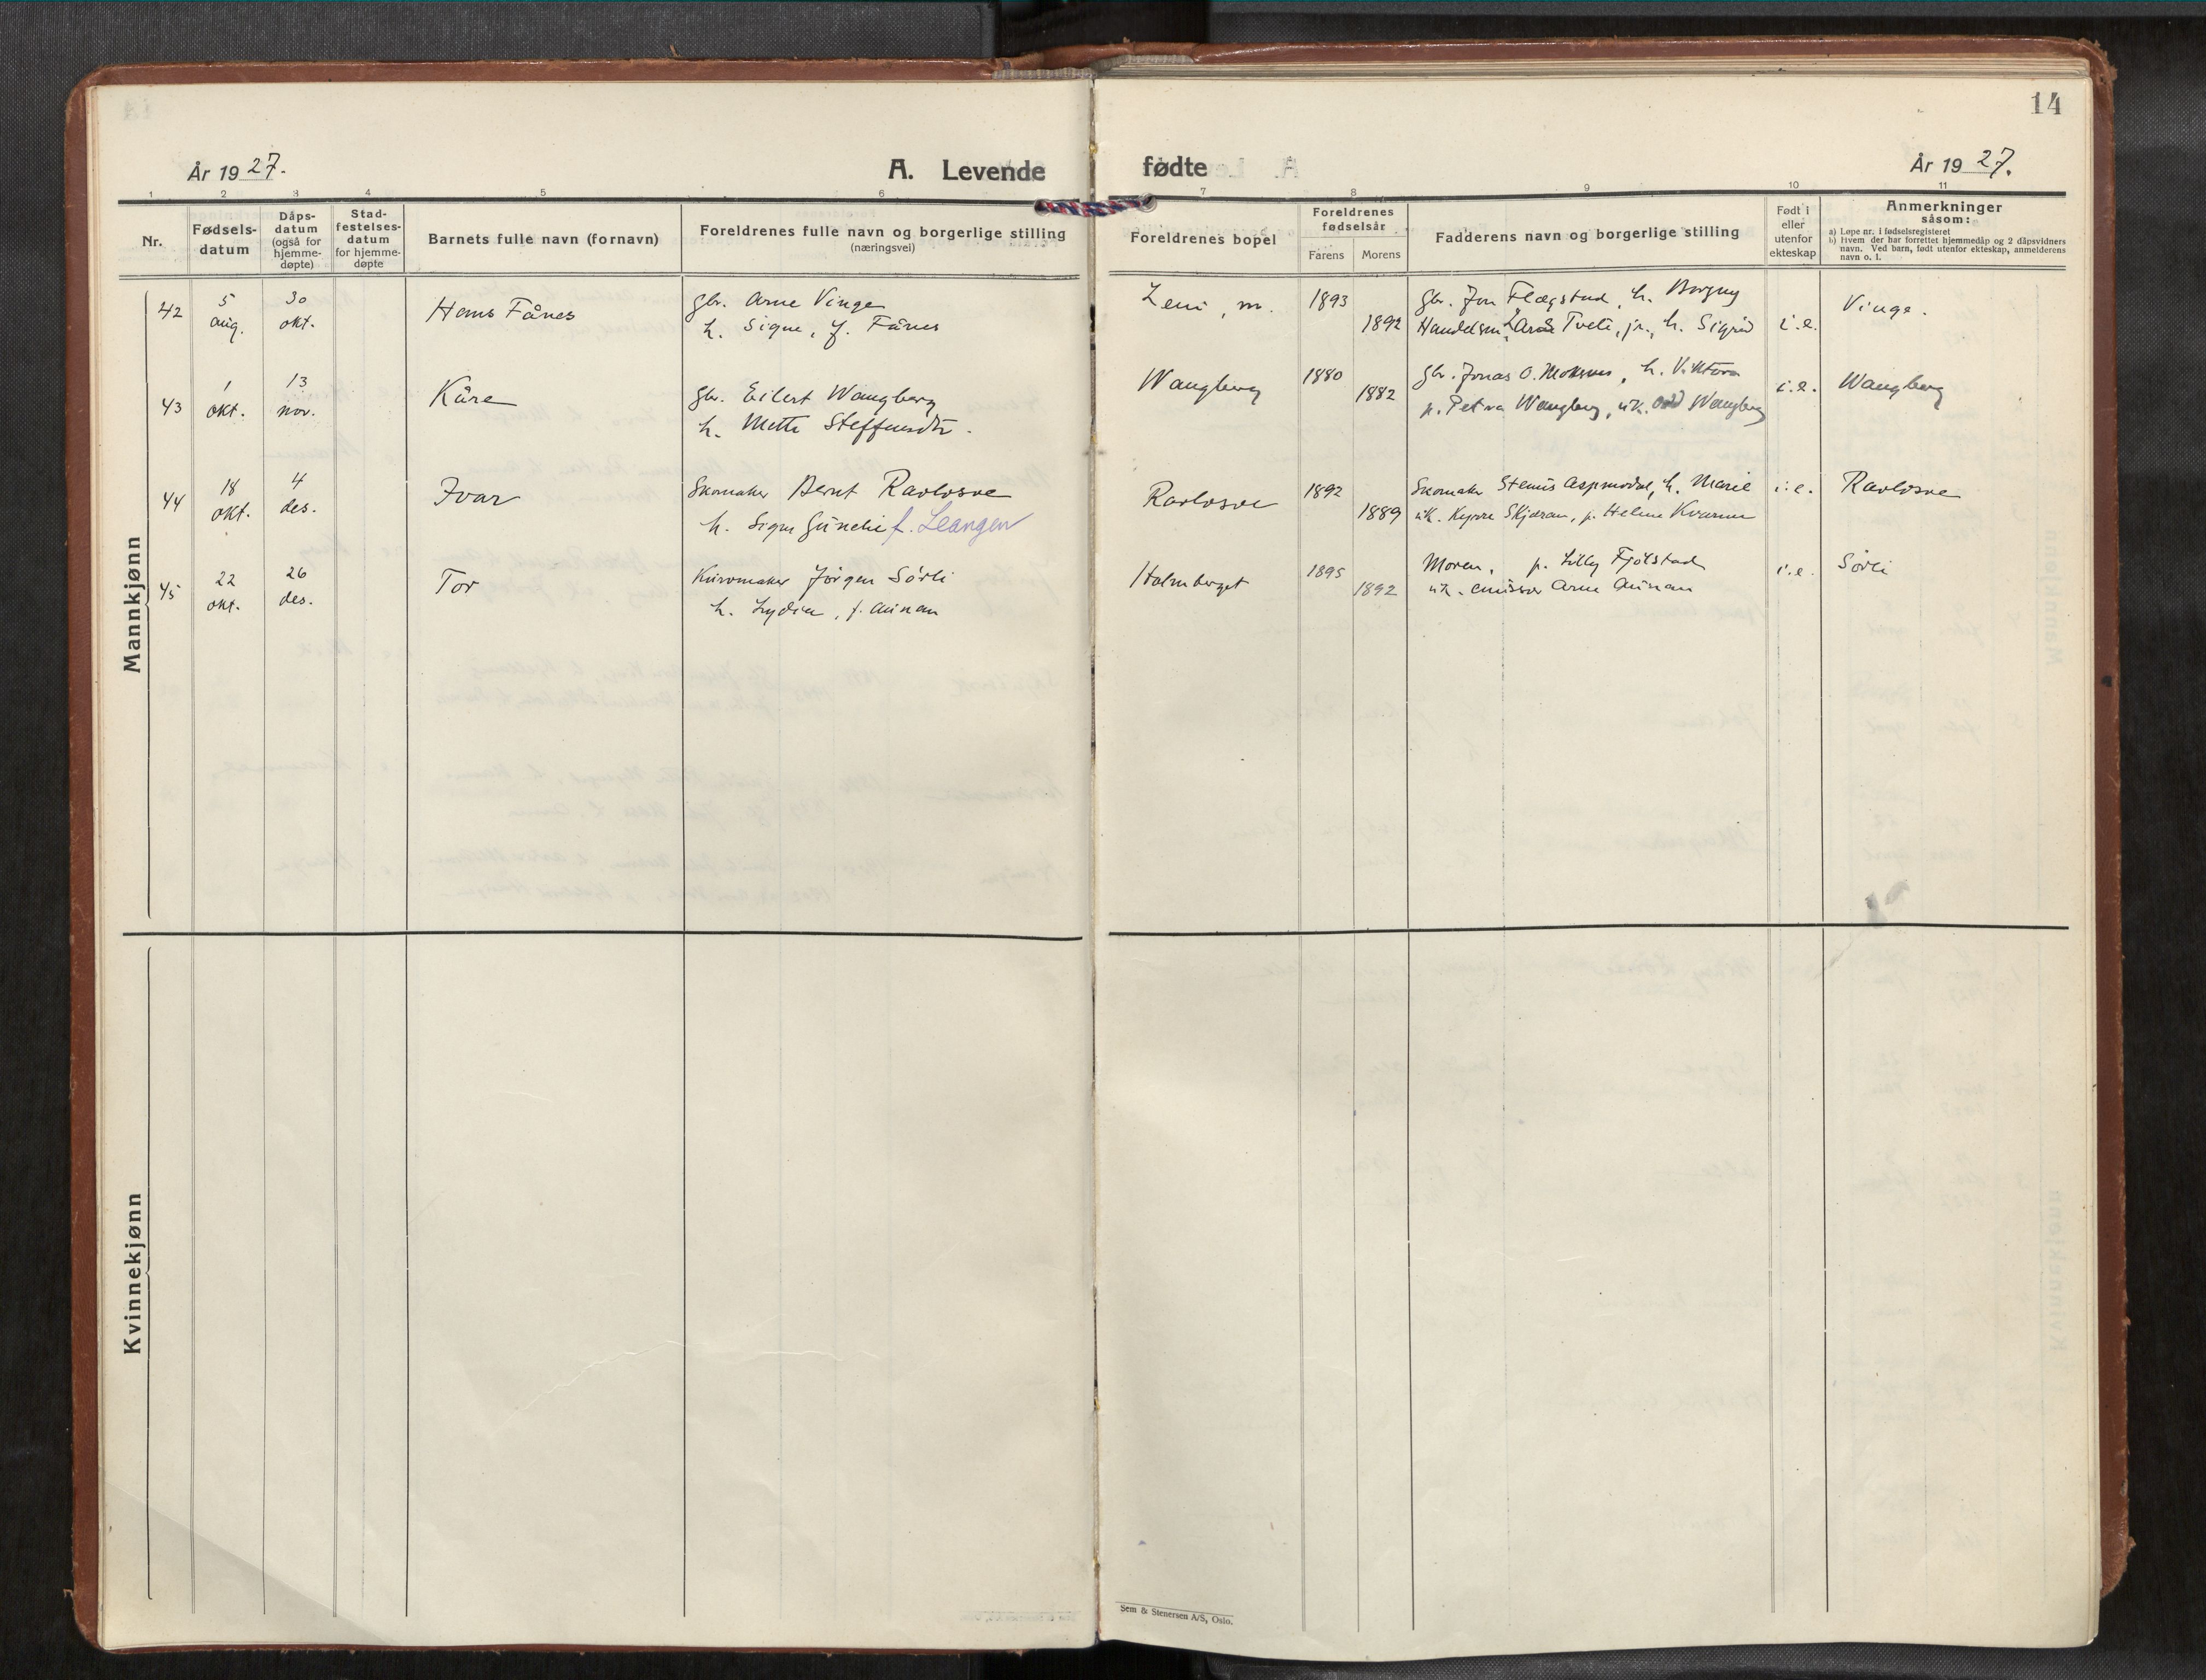 14
År 1927.
A. Levende
fødte
År 1927.
1 2 3 4 5 6 7 8 9 10 11
Nr.
Fødsels-
datum
Dåps-
datum
(også for
hjemme-
døpte)
Stad-
festelses-
datum
for hjemme-
døpte
Barnets fulle navn (fornavn)
Foreldrenes fulle navn og borgerlige stilling
(næringsvei)
Foreldrenes bopel
Foreldrenes
fødselsår
Farens
Morens
Fadderens navn og borgerlige stilling
Født i
eller
utenfor
ekteskap
Anmerkninger
såsom:
a) Løpe nr. i fødselsregisteret
b) Hvem der har forrettet hjemmedåp og 2 dåpsvidners
navn. Ved barn, født utenfor ekteskap, anmelderens
navn o. l.
Mannkjønn
42
5
aug.
30
okt.
Hans Fånes
gbr. Arne Vinge
h. Signe, f. Fånes
, m.
1893
1892
gbr. Jon Flægstad, h. Borgny
Handelsm. Tveti, jr., h. Sigrid
i.e.
Vinge.
43
1
okt.
13
nov.
Kåre
gbr. Eilert Wangberg
h. Mette Steffensdtr.
Wangberg
1880
1882
gbr. Jonas O. Moksnes, h. Viktora
p. Petra Wangberg, uk. Odd Wangberg
i.e.
Wangberg
44
18
okt.
4
des.
Ivar
Skomaker Bernt Ravlosve
h. Signe f. Leangen
Ravlosve
1892
1889
Skomaker h. Marie
uk. Skjæran, p. Helene Kvarme
i.e.
Ravlosve
45
22
okt.
26
des.
Tor
Kurvmaker Jørgen Sørli
h. Lydia, f. Aunan
Holmberget
1895
1892
Moren, p. Lilly Fjølstad
uk. Arne Aunan
i.e.
Sørli
Kvinnekjønn
Sem & Stenersen A/S, Oslo.